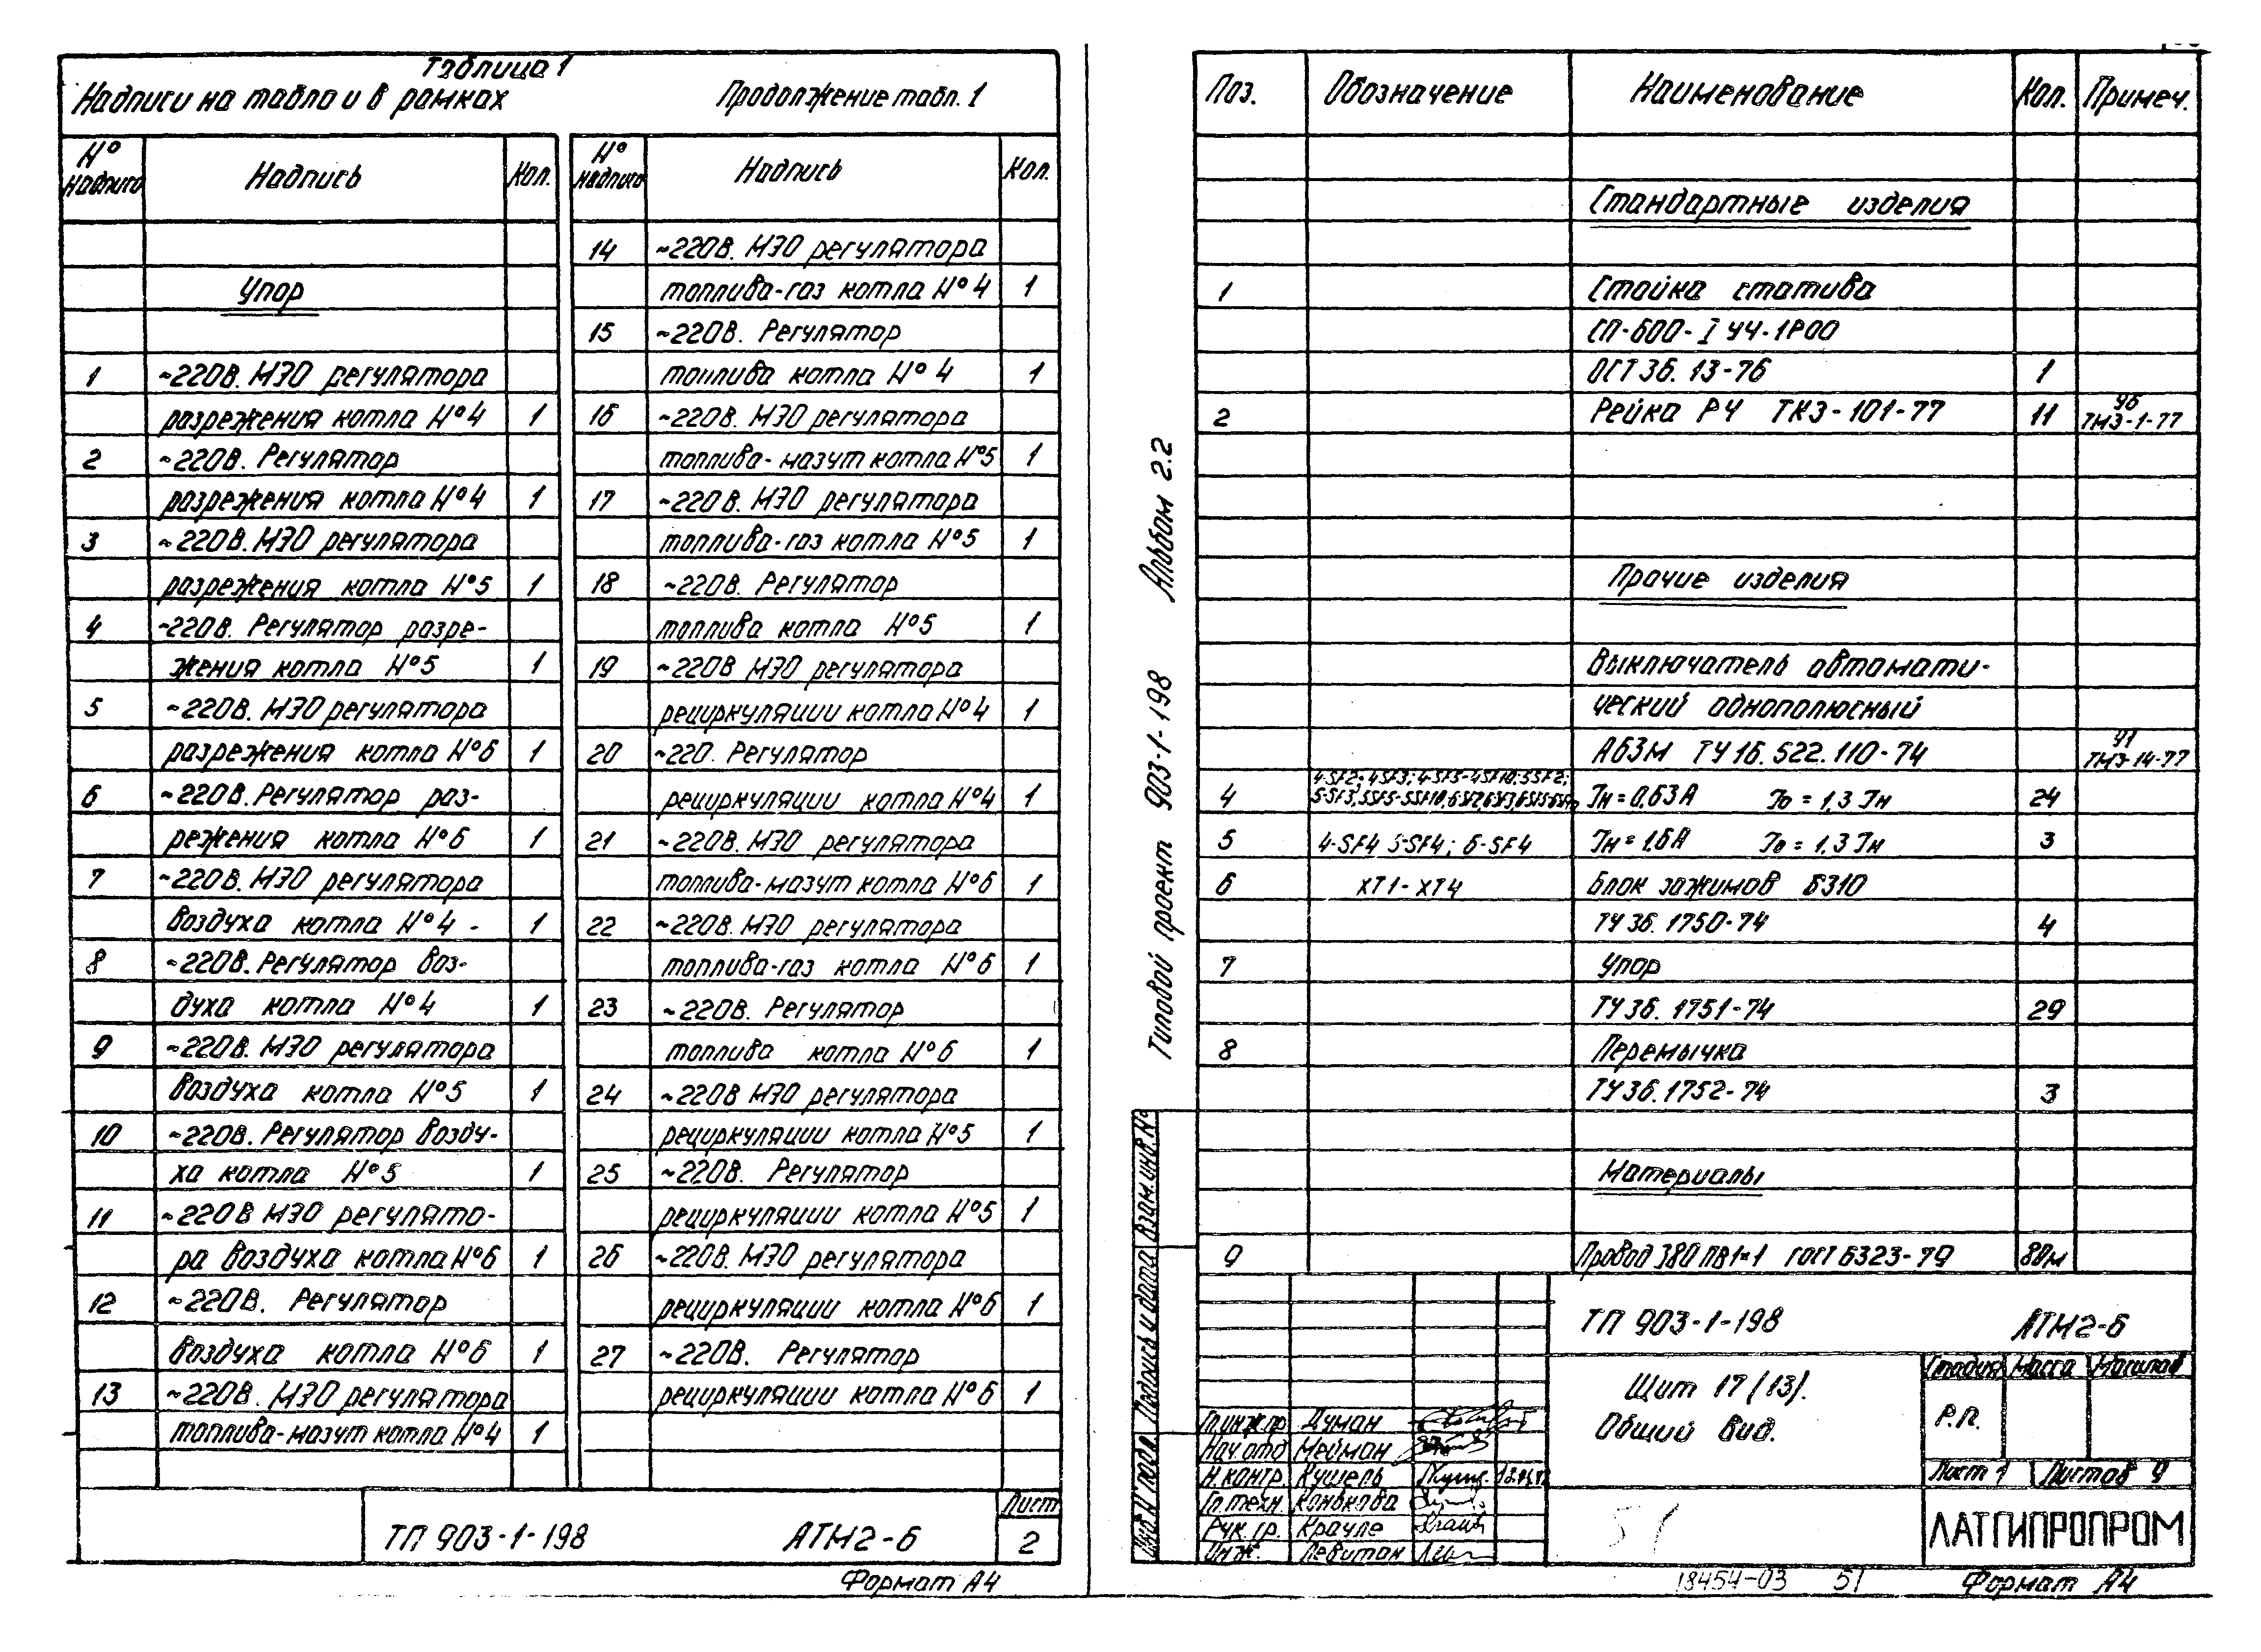 Таблица 1
Надписи на табло и в рамках
Продолжение табл. 1
№ надписи Надпись Кол.
Упор
1 ~220В. МЭО регулятора
разрежения котла №4 1
2 ~220В. Регулятор
разрежения котла №4 1
3 ~220В. МЭО регулятора
разрежения котла №5 1
4 ~220В. Регулятор разре-
жения котла №5 1
5 ~220В. МЭО регулятора
разрежения котла №6 1
6 ~220В. Регулятор раз-
режения котла №6 1
7 ~220В. МЭО регулятора
воздуха котла №4 - 1
8 ~220В. Регулятор воз-
духа котла №4 1
9 ~220В. МЭО регулятора
воздуха котла №5 1
10 ~220В. Регулятор возду-
ха котла №5 1
11 ~220В МЭО регулято-
ра воздуха котла №6 1
12 ~220В. Регулятор
воздуха котла №6 1
13 ~220В. МЭО регулятора
топлива-мазут котла №4 1
№ надписи Надпись Кол.
14 ~220В. МЭО регулятора
топлива-газ котла №4 1
15 ~220В. Регулятор
топлива котла №4 1
16 ~220В. МЭО регулятора
топлива-мазут котла №5 1
17 ~220В. МЭО регулятора
топлива-газ котла №5 1
18 ~220В. Регулятор
топлива котла №5 1
19 ~220В МЭО регулятора
рециркуляции котла №4 1
20 ~220. Регулятор
рециркуляции котла №4 1
21 ~220В. МЭО регулятора
топлива-мазут котла №6 1
22 ~220В. МЭО регулятора
топлива-газ котла №6 1
23 ~220В. Регулятор
топлива котла №6 1
24 ~220В МЭО регулятора
рециркуляции котла №5 1
25 ~220В. Регулятор
рециркуляции котла №5 1
26 ~220В. МЭО регулятора
рециркуляции котла №6 1
27 ~220В. Регулятор
рециркуляции котла №6 1
ТП 903-1-198 АТМ2-6
Лист
2
Формат А4
Типовой проект 903-1-198 Альбом 2.2
Поз. Обозначение Наименование Кол. Примеч.
Стандартные изделия
1 Стойка статива
СП-600-I УЧ-IP00
ОСТ 36.13-76 1
2 Рейка РЧ ТК3-101-77 11 У6 ТМ3-1-77
Прочие изделия
Выключатель автомати-
ческий однополюсный
А63М ТУ 16.522.110-74 У1 ТМ3-14-77
4-SF2; 4-SF3; 4-SF5-4SF10; 5SF2;
4 Iн=0,63А Iо=1,3 Iн 24
5 4-SF4 5-SF4; 6-SF4 Iн=1,6А Iо=1,3 Iн 3
6 ХТ1-ХТ4 Блок зажимов БЗ10
ТУ 36.1750-74 4
7 Упор
ТУ 36.1751-74 29
8 Перемычка
ТУ 36.1752-74 3
Материалы
9 Провод 380 ПВ1×1 ГОСТ 6323-79 80м
Взам.инв.№
Подпись и дата
Инв.№ подл.
ТП 903-1-198 АТМ2-6
Щит 17 (13).
Общий вид.
Стадия Масса Масштаб
Р.П.
Лист 1 Листов 9
ЛАТГИПРОПРОМ
Гл.инж.пр. Думан
Нач.отд Мейман
Н.контр. Кушель
Гл.техн. Конькова
Рук.гр. Крауле
Инж. Левитан
51
18454-03 51
Формат А4